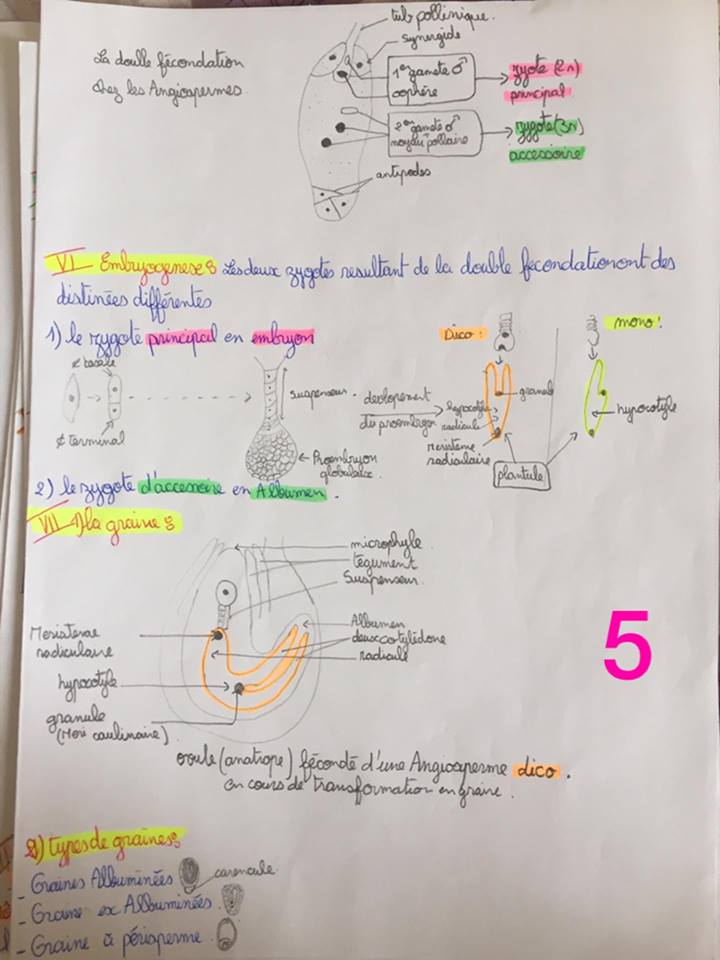 tub pollinique.
synergide
La double fécondation
chez les Angiospermes.
1er gamete ♂
oosphère
zyote (2n)
principal
2em gamete ♂
noyau pollaire
zygote (3n)
accessoire
antipodes
VI_ Embryogenese : Les deux zygotes resultant de la double fecondation ont des
distinées différentes
1) le zygote principal en embryon
Dico :
mono :
¢ basale
suspenseur.
devlopement
du proembryon
granule
hypocotyle
radicule
hypocotyle
¢ terminal
Proembryon
globulaire.
meristeme
radiculaire
plantule
2) le zygote d'accessoire en Albumen.
VII_ la graine :
microphyle
tegument
Suspenseur.
Meristeme
radiculaire
Albumen
deux cotylédone
radicule
hypocotyle
granule
(Meri caulinaire)
5
ovule (anatrope) fécondé d'une Angiosperme dico.
en cours de transformation en graine.
2) types de graines :
- Graines Albuminées
caroncule.
- Graine ex Albuminées.
- Graine à périsperme.